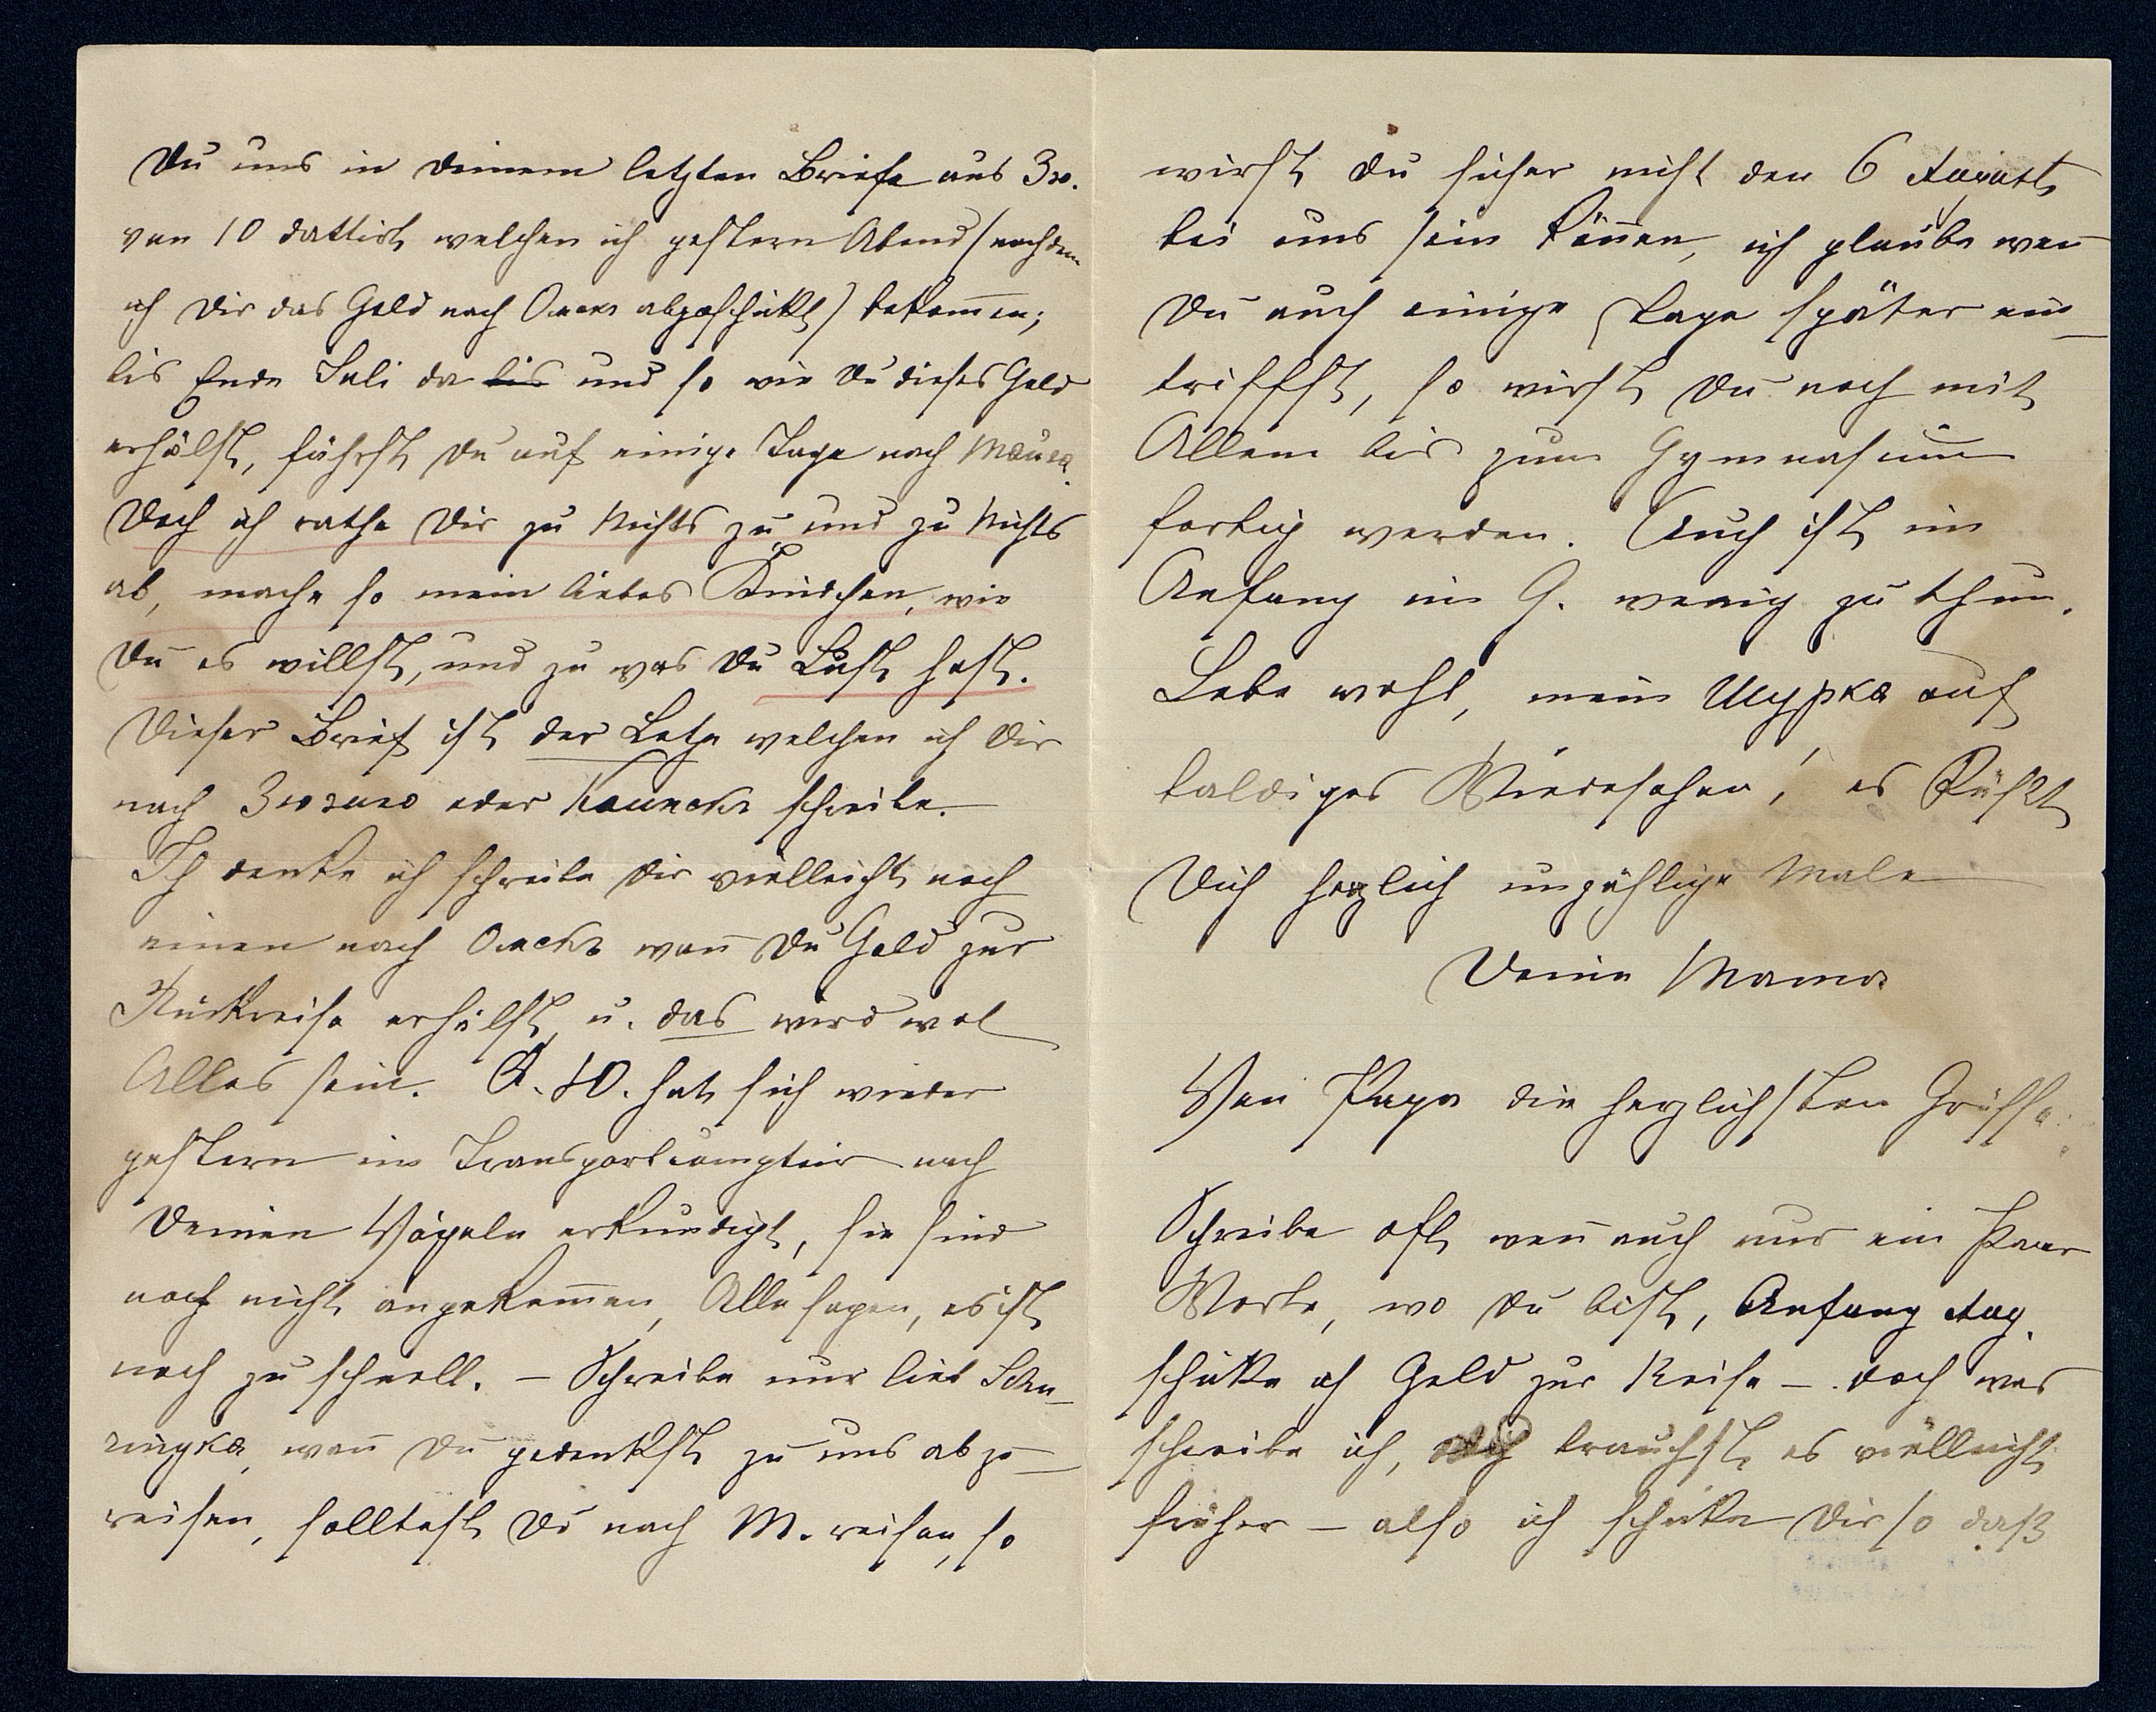 Du uns in Deinem letzten Briefe aus Зю.
von 10 dattirt welchen ich gestern Abend (nachdem
ich Dir das Geld nach Омскъ abgeschickt) bekom̅en;
bis Ende Juli da bis und so wie Du dieses Geld
erhälst, fährst Du auf einige Tage nach
Doch ich rathe Dir zu Nichts zu und zu Nichts
ab, mache so mein liebes Kindchen, wie
Du es willst, und zu was Du Lust hast.
Dieser Brief ist der Letze welchen ich Dir
nach Зюзино oder Каинскъ schreibe.
Ich denke ich schreibe Dir vielleicht noch
einen nach Омскъ wan̅ Du Geld zur
Rückreise erhälst, u. das wird wol
Alles sein. A. Ю. hat sich wieder
gestern im Transportcomptoir nach
Deinen Vögeln erkundigt, sie sind
noch nicht angekom̅en, Alle sagen, es ist
noch zu schnell. – Schreibe nur lieb Schu-
ringka, wan̅ Du gedenkst zu uns abzu-
reisen, solltest Du nach M. reisen, so
wirst Du sicher nicht den 6 August
bei uns sein kön̅en, ich glaube wen̅
Du auch einige Tage später ein-
triffst, so wirst Du noch mit
Allem bis zum Gymnasium
fertig werden. Auch ist im
Anfang im G. wenig zu thun.
Lebe wohl, mein Шурка auf
baldiges Wiedersehen! es küßt
Dich herzlich unzählige Male
Deine Mama
Von Papa die herzlichsten Grüsse.
Schreibe oft, wen̅ auch nur ein Paar
Worte, wo Du bist, Anfang Aug.
schicke ich Geld zur Reise – doch was
schreibe ich, brauchst es vielleicht
früher – also ich schicke Dir so daß